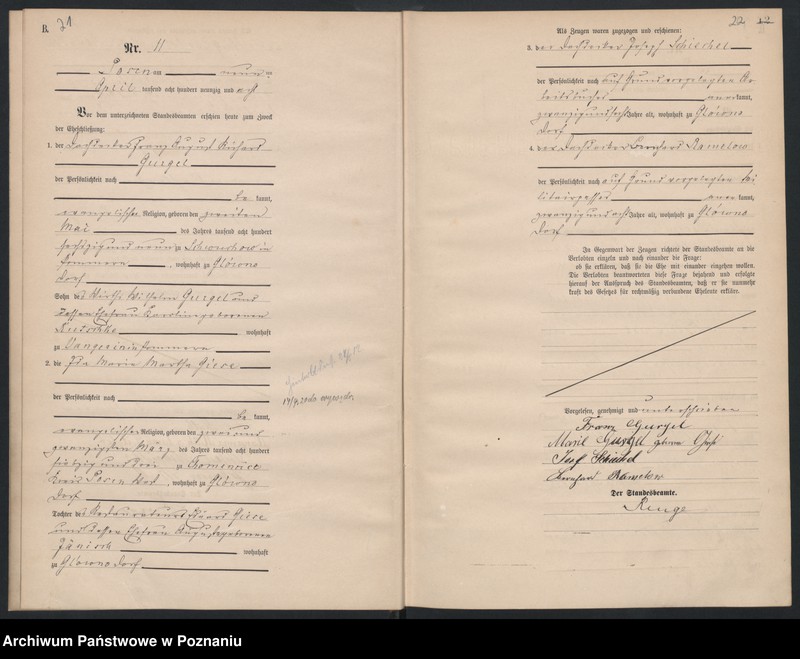 B. 21
Nr. 11
Posen am neun ten
April tausend acht hundert neunzig und acht
Vor dem unterzeichneten Standesbeamten erschien heute zum Zweck
der Eheschließung:
1. der Franz August Richard
Gurgel
der Persönlichkeit nach
be kannt,
evangelischer Religion, geboren den zweiten
Mai des Jahres tausend acht hundert
sechzig und neun zu
Pommern, wohnhaft zu Glowno
Dorf
Sohn des Wirths Wilhelm Gurgel und
dessen Ehefrau Karoline geborenen
wohnhaft
zu in Pommern
2. die Ida Maria Martha Giese
der Persönlichkeit nach
be kannt,
evangelischer Religion, geboren den zwei und
zwanzigsten März des Jahres tausend acht hundert
siebzig und drei zu
Kreis Posen, wohnhaft zu Glowno
Dorf
Tochter des Restaurateurs Giese
und dessen Ehefrau geborenen
Jänisch wohnhaft
zu Glowno Dorf
22
Als Zeugen waren zugezogen und erschienen:
3. der Dachdecker Joseph
der Persönlichkeit nach auf Grund vorgelegten Ar
beitsbuches aner kannt,
zwanzig und sechs Jahre alt, wohnhaft zu Glowno
Dorf
4. der Dachdecker Bernhard Rametow
der Persönlichkeit nach auf Grund vorgelegten Mi
litairpasses aner kannt,
zwanzig und acht Jahre alt, wohnhaft zu Glowno
Dorf
In Gegenwart der Zeugen richtete der Standesbeamte an die
Verlobten einzeln und nach einander die Frage:
ob sie erklären, daß sie die Ehe mit einander eingehen wollen.
Die Verlobten beantworteten diese Frage bejahend und erfolgte
hierauf der Ausspruch des Standesbeamten, daß er sie nunmehr
kraft des Gesetzes für rechtmäßig verbundene Eheleute erkläre.
Vorgelesen, genehmigt und unterschrieben
Franz Gurgel
Marie Gurgel geborene Giese
Josef
Bernhard Rametow
Der Standesbeamte.
Archiwum Państwowe w Poznaniu